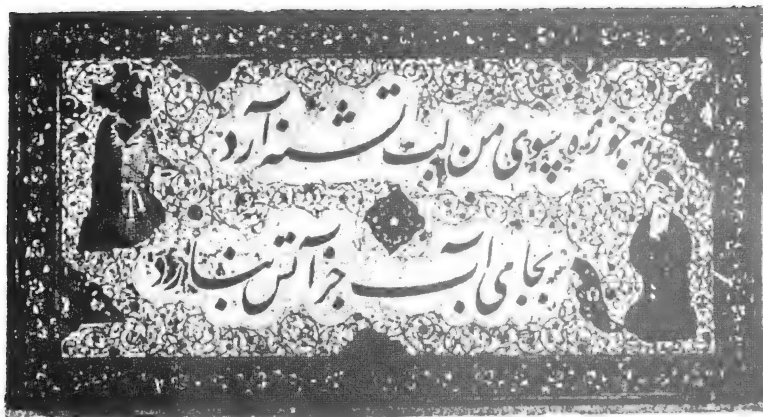 بسوی من لب تشنه آرد
بجای آب جز آتش نبارد